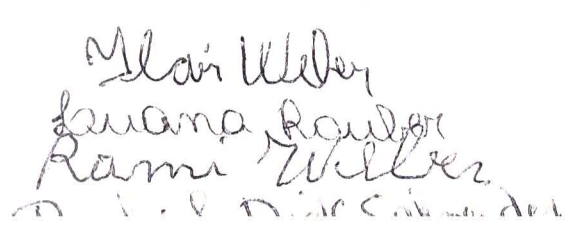 Ilair Weber
Lauana Rauber
Rami Weber